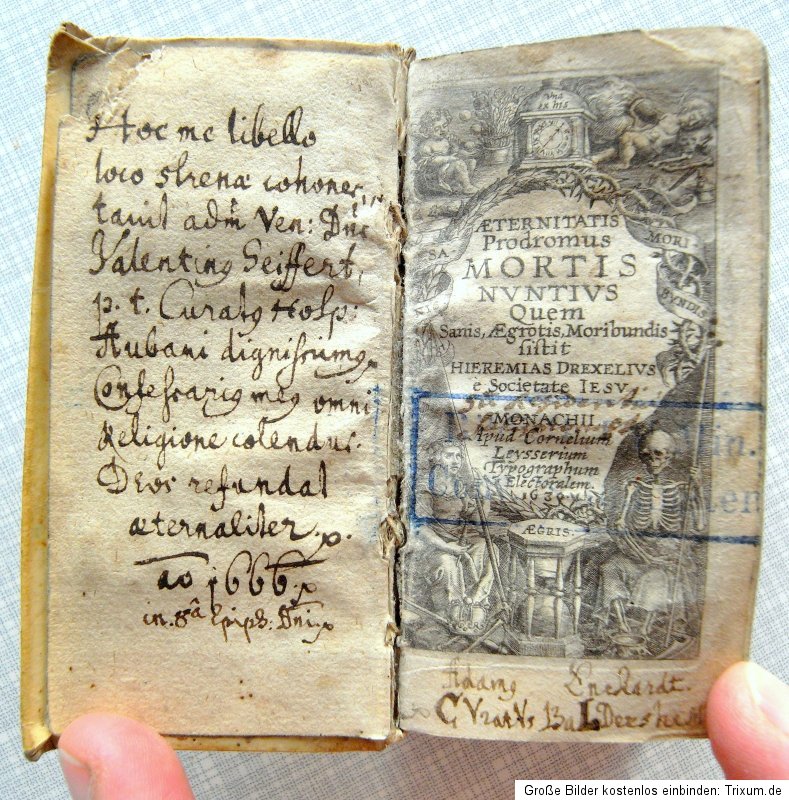 Hoc me libello
loco strenæ cohones,
tavit adm̄ Ven: Dn̄s
Valentinꝰ Seiffert,
p. t. Curatꝰ Holp:
Aubani dignissimꝰ
Confessariꝰ meꝰ omni
Religione colendus.
Deus refundat
æternaliter.
ao 1666.
in 8â Epiph: Dn̄i
VNA
EX HIS
SA
NIS
MORI
BVNDIS
ÆTERNITATIS
Prodromus
MORTIS
NVNTIVS
Quem
Sanis, Ægrotis, Moribundis
sistit
HIEREMIAS DREXELIVS
è Societate IESV
MONACHII
Apud Cornelium
Leysserium
Typographum
Electoralem.
ÆGRIS.
Adamꝰ Enchardt.
CVratVs
Große Bilder kostenlos einbinden: Trixum.de